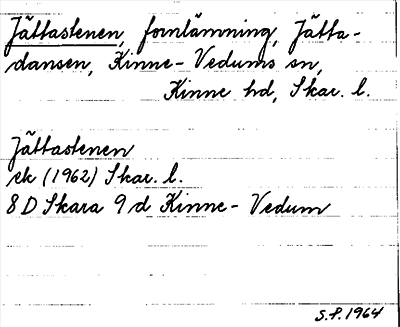 Jättastenen, fornlämning, Jätta-
dansen, Kinne-Vedums sn,
Kinne hd, Skar. l.
Jättastenen
ek (1962) Skar. l.
8 D Skara 9 d Kinne-Vedum
S.P. 1964